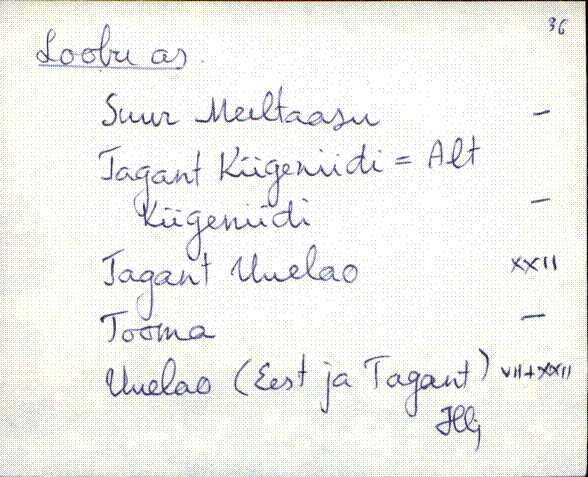 36
Loobu as.
Suur Meeltaasu —
Tagant Kiigeniidi = Alt
Kiigeniidi —
Tagant Uuelao XXII
Tooma —
Uuelao (Eest ja Tagant) VII+XXII
Hlj